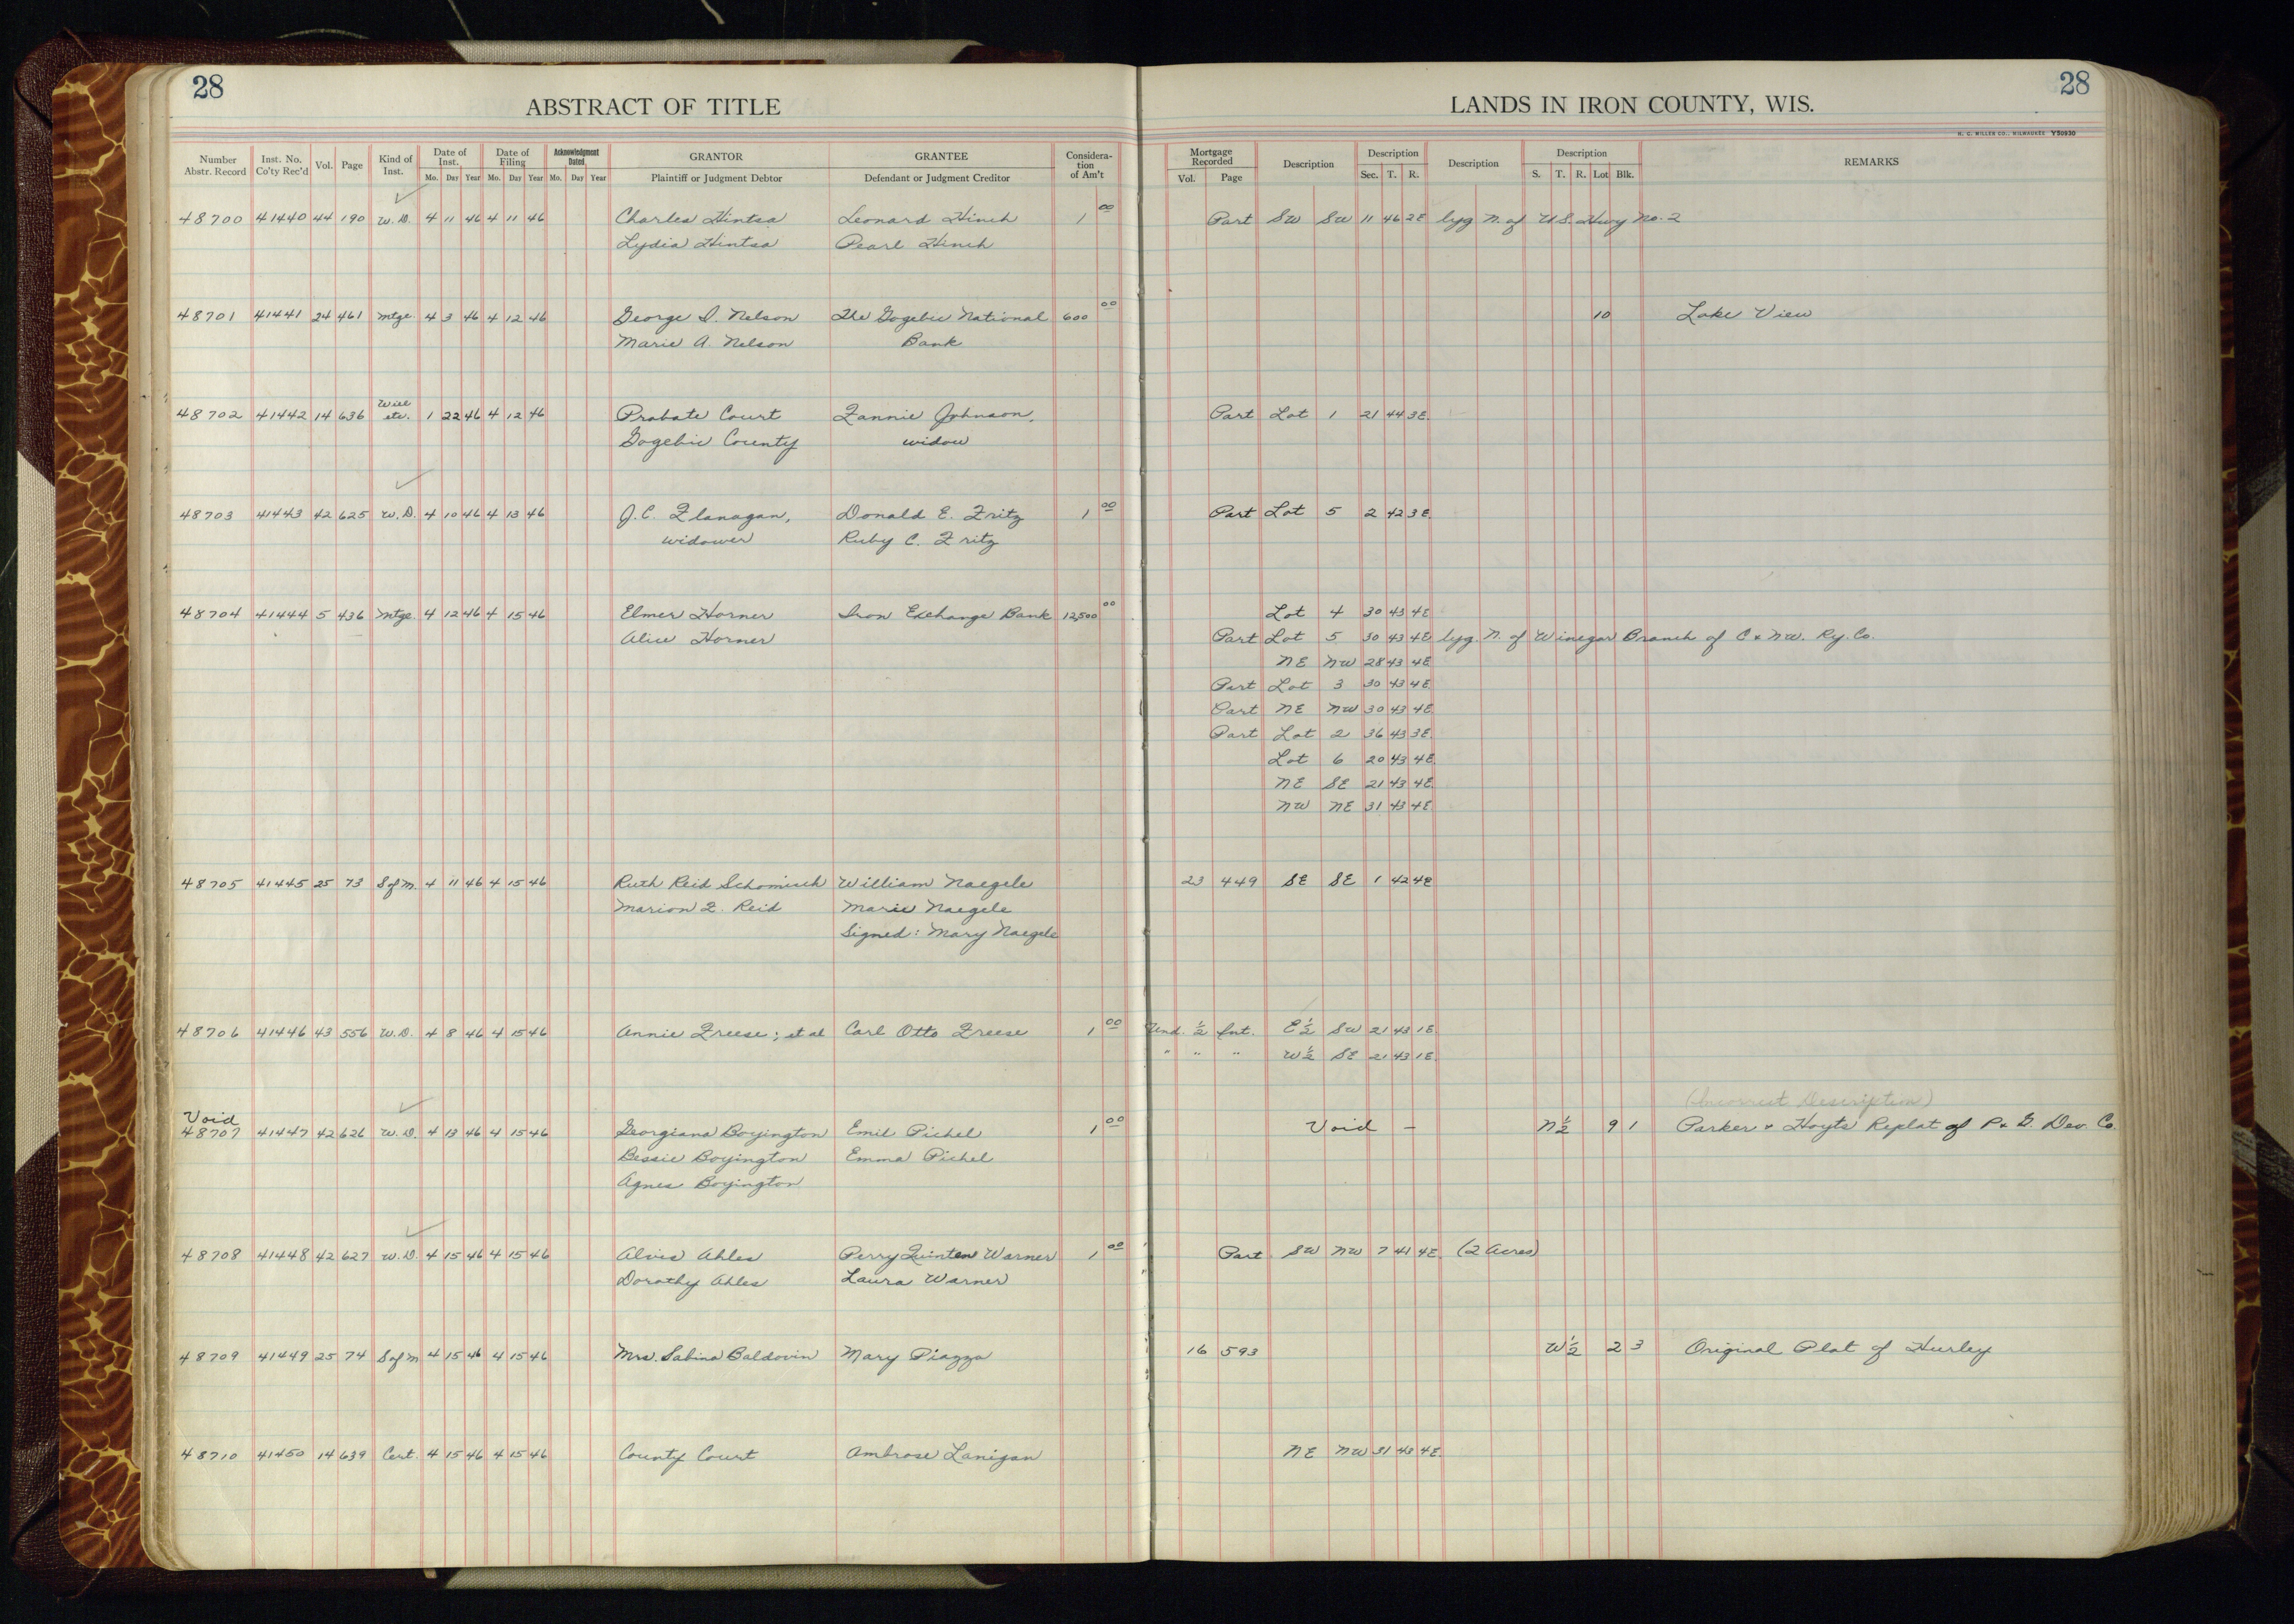 28
28
ABSTRACT OF TITLE
LANDS IN IRON COUNTY, WIS.
H. C. MILLER CO., MILWAUKEE Y50930
Number Abstr. Record | Inst. No. Co'ty Rec'd | Vol. | Page | Kind of Inst. | Date of Inst. Mo. Day Year | Date of Filing Mo. Day Year | Acknowledgment Dated Mo. Day Year | GRANTOR Plaintiff or Judgment Debtor | GRANTEE Defendant or Judgment Creditor | Consideration of Am't | Mortgage Recorded Vol. Page | Description | Description Sec. T. R. | Description | Description S. T. R. Lot Blk. | REMARKS
48700 41440 44 190 W.D. 4 11 46 4 11 46 Charles Hintsa Leonard Hinch 1 00 Part SW SW 11 46 2E lyg N. of U.S. Hwy No. 2
Lydia Hintsa Pearl Hinch
48701 41441 24 461 Mtge. 4 3 46 4 12 46 George D. Nelson The Gogebic National 600 00 10 Lake View
Marie A. Nelson Bank
48702 41442 14 636 Will etc. 1 22 46 4 12 46 Probate Court Fannie Johnson, Part Lot 1 21 44 3E.
Gogebic County widow
48703 41443 42 625 W.D. 4 10 46 4 13 46 J.C. Flanagan, Donald E. Fritz 1 00 Part Lot 5 2 42 3E
widower Ruby C. Fritz
48704 41444 5 436 Mtge. 4 12 46 4 15 46 Elmer Horner Iron Exchange Bank 12,500 00 Lot 4 30 43 4E
Alice Horner Part Lot 5 30 43 4E lyg. N. of Winegar Branch of C & N.W. Ry. Co.
NE NW 28 43 4E
Part Lot 3 30 43 4E
Part NE NW 30 43 4E
Part Lot 2 36 43 3E
Lot 6 20 43 4E
NE SE 21 43 4E
NW NE 31 43 4E
48705 41445 25 73 S of M. 4 11 46 4 15 46 Ruth Reid Schomisch William Naegele 23 449 SE SE 1 42 4E
Marion F. Reid Marie Naegele
Signed: Mary Naegele
48706 41446 43 556 W.D. 4 8 46 4 15 46 Annie Freese; et al Carl Otto Freese 1 00 Und. ½ Int. E½ SW 21 43 1E
" " " W½ SE 21 43 1E
(Incorrect Description)
Void
48707 41447 42 626 W.D. 4 13 46 4 15 46 Georgiana Boyington Emil Pichel 1 00 Void - N½ 9 1 Parker & Hoyts' Replat of P. & G. Dev. Co.
Bessie Boyington Emma Pichel
Agnes Boyington
48708 41448 42 627 W.D. 4 15 46 4 15 46 Alois Ahles Perry Quinten Warner 1 00 Part SW NW 7 41 4E (2 Acres)
Dorothy Ahles Laura Warner
48709 41449 25 74 S of M 4 15 46 4 15 46 Mrs. Sabina Baldovin Mary Piazza 16 593 W½ 2 3 Original Plat of Hurley
48710 41450 14 639 Cert. 4 15 46 4 15 46 County Court Ambrose Lanigan NE NW 31 43 4E